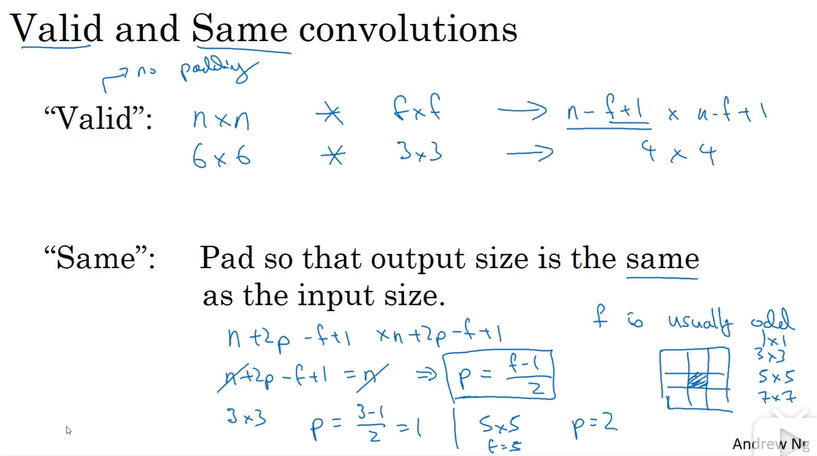 Valid and Same convolutions
→ no padding
“Valid”: n×n * f×f → n-f+1 × n-f+1
6×6 * 3×3 → 4 × 4
“Same”: Pad so that output size is the same
as the input size.
n+2p-f+1 ×n+2p-f+1
n+2p-f+1 = n ⇒ p = (f-1)/2
3×3 p = (3-1)/2 = 1 | 5×5 p=2
f=5
f is usually odd
1×1
3×3
5×5
7×7
Andrew Ng